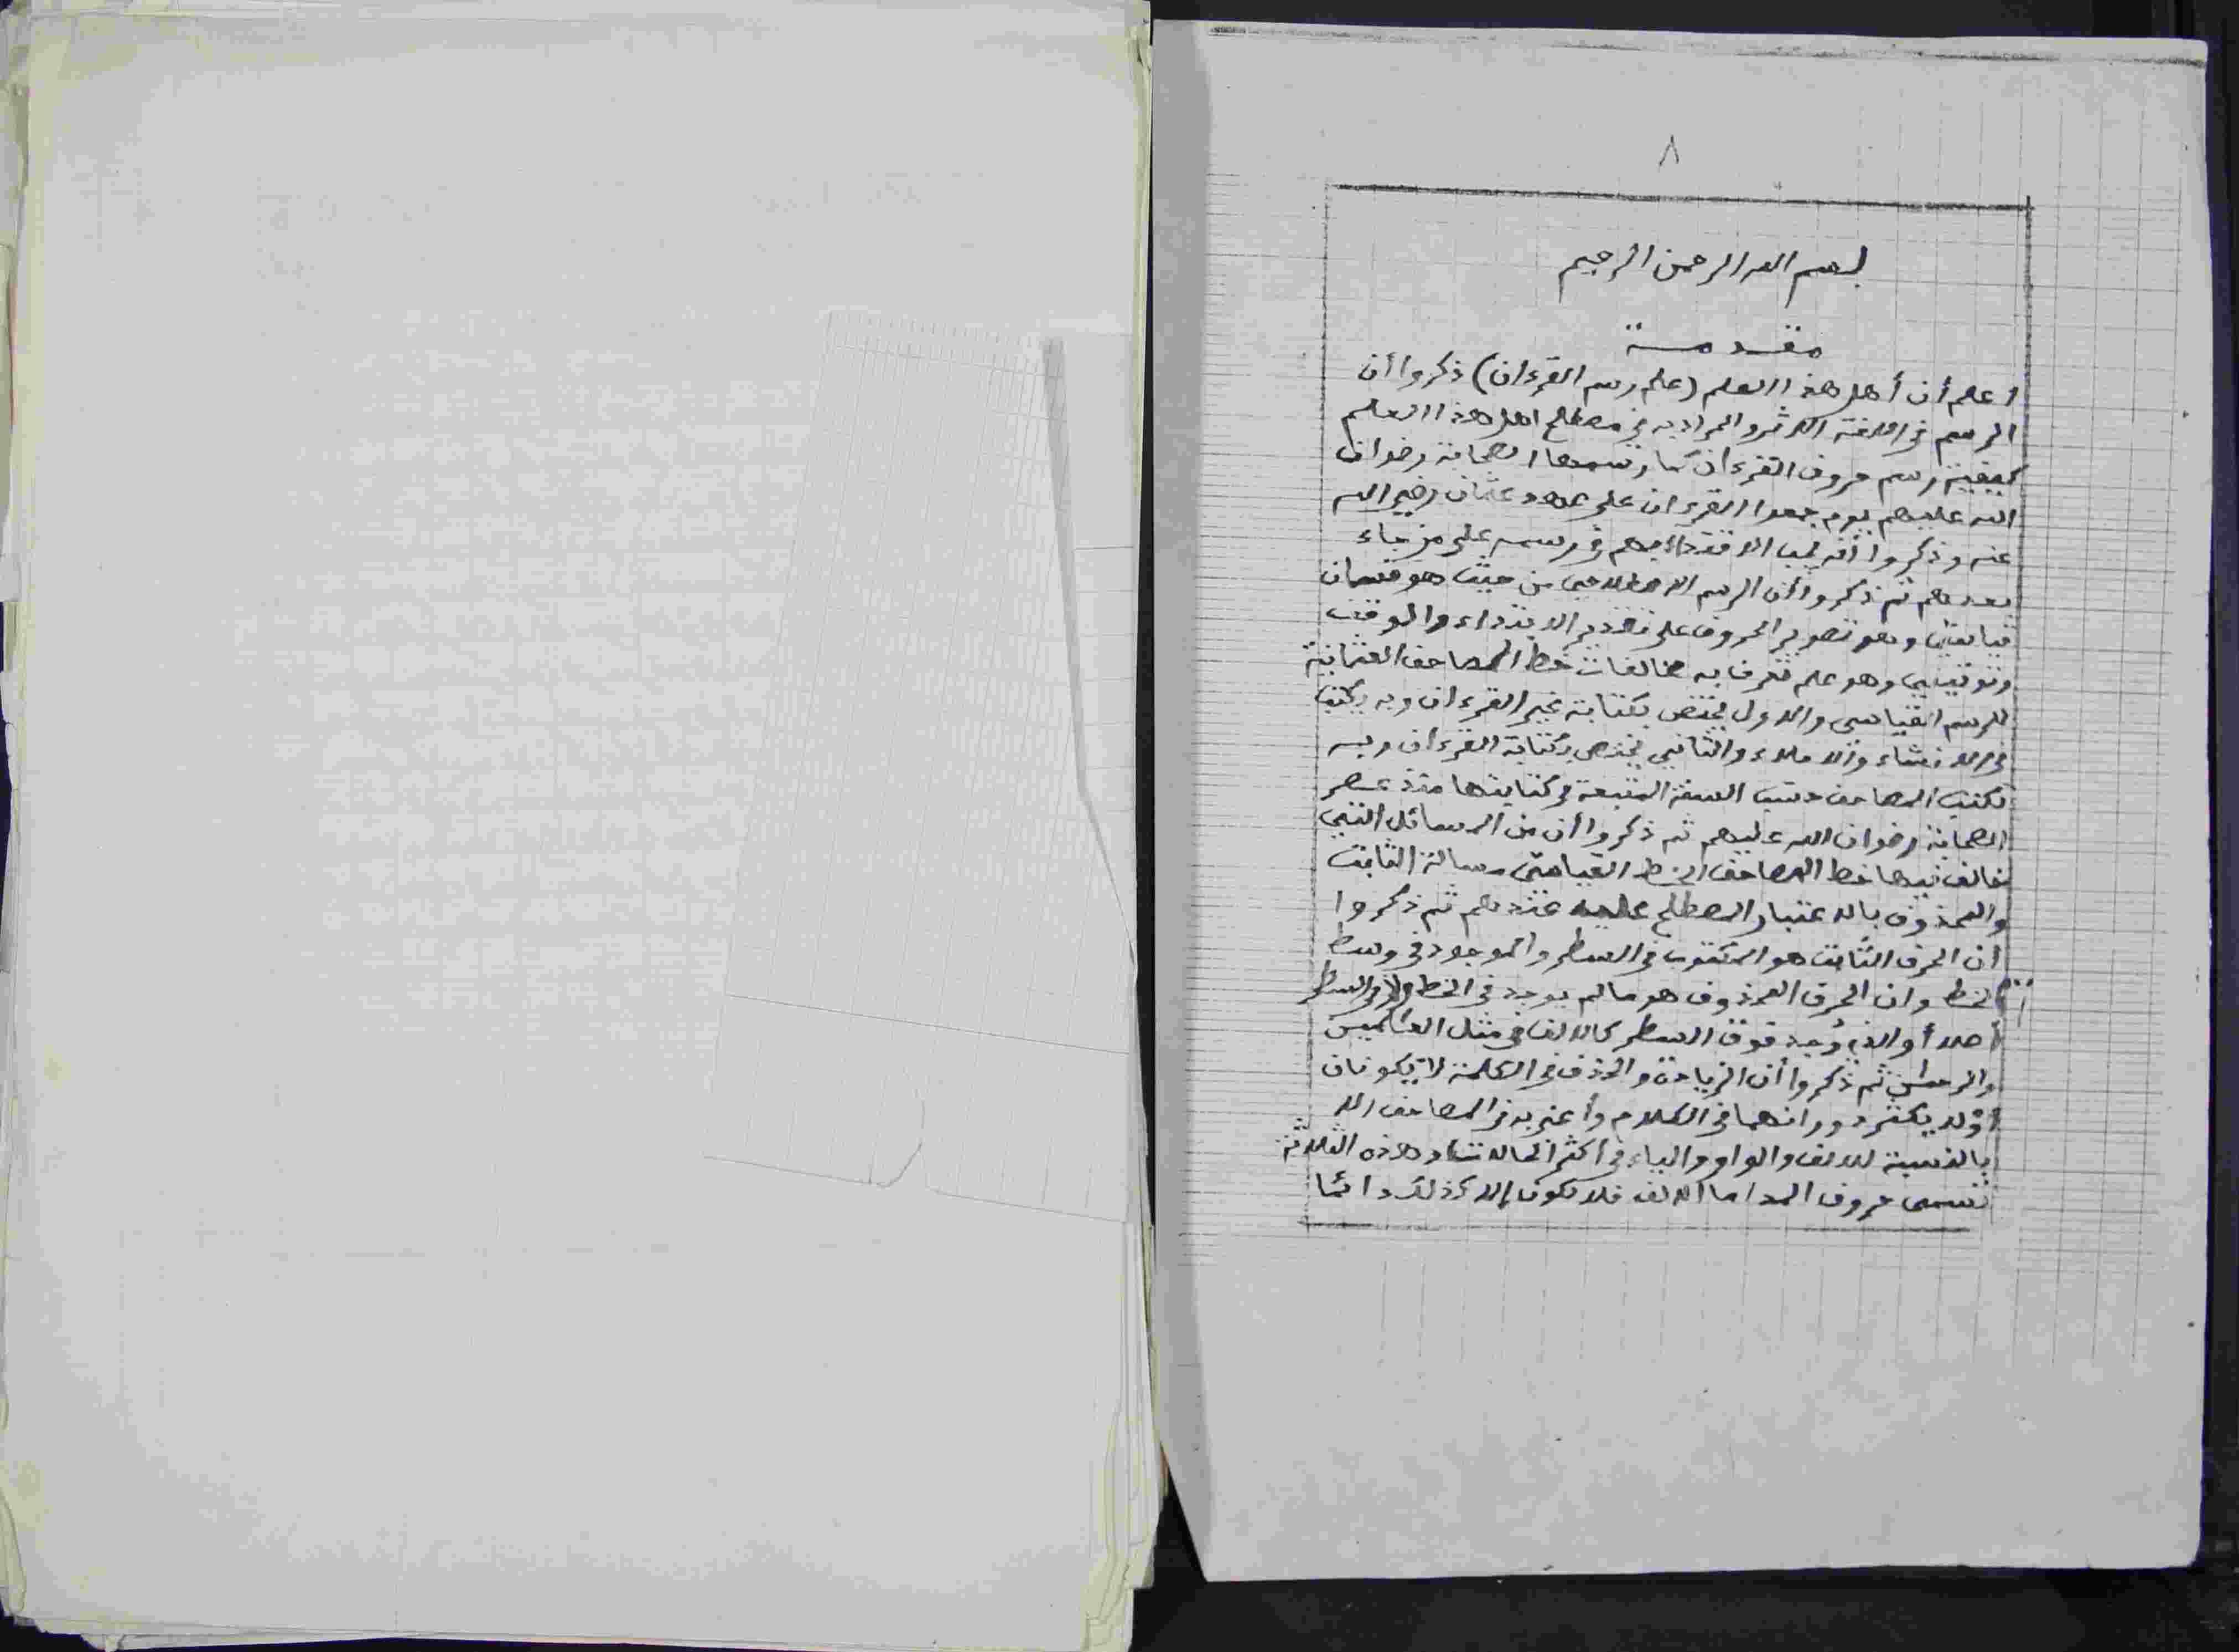 ٨
بسم الله الرحمن الرحيم
مقدمة
اعلم أن أهل هذا العلم (علم رسم القرءان) ذكروا أن
الرسم في اللغة الأثر والمراد به في مصطلح اهل هذا العلم
كيفية رسم حروف القرءان كما رسمها الصحابة رضوان
الله عليهم يوم جمعوا القرءان على عهد عثمان رضي الله
عنه وذكروا أنه يجب الاقتداء بهم في رسمه على من جاء
بعدهم ثم ذكروا أن الرسم الاصطلاحي من حيث هو قسمان
قياسي وهو تصوير الحروف على تقدير الابتداء والوقف
وتوقيفي وهو علم تعرف به مخالفات خط المصاحف العثمانية
للرسم القياسي والاول يختص بكتابة غير القرءان وبه يكتب
في الانشاء والاملاء والثاني يختص بكتابة القرءان وبه
تكتب المصاحف حسب السنة المتبعة في كتابتها منذ عصر
الصحابة رضوان الله عليهم ثم ذكروا أن من المسائل التي
خالف فيها خط المصاحف الخط القياسي مسالة الثابت
والمحذوف بالاعتبار المصطلح عليه عندهم ثم ذكروا
أن الحرف الثابت هو المكتوب في السطر والموجود في وسط
الخط وان الحرف المحذوف هو مالم يوجد في الخط ولا في السطر
أصلا أو الذي وُجد فوق السطر كالالف في مثل العٰلمين
والرحمٰن ثم ذكروا أن الزيادة والحذف في الكلمة لا يكونان
أو لا يكثر دورانهما في الكلام وأعني به في المصاحف الا
بالنسبة للالف والواو والياء في اكثر الحالات وهذه الثلاثة
تسمى حروف المد اما الالف فلا تكون إلا كذلك دائما